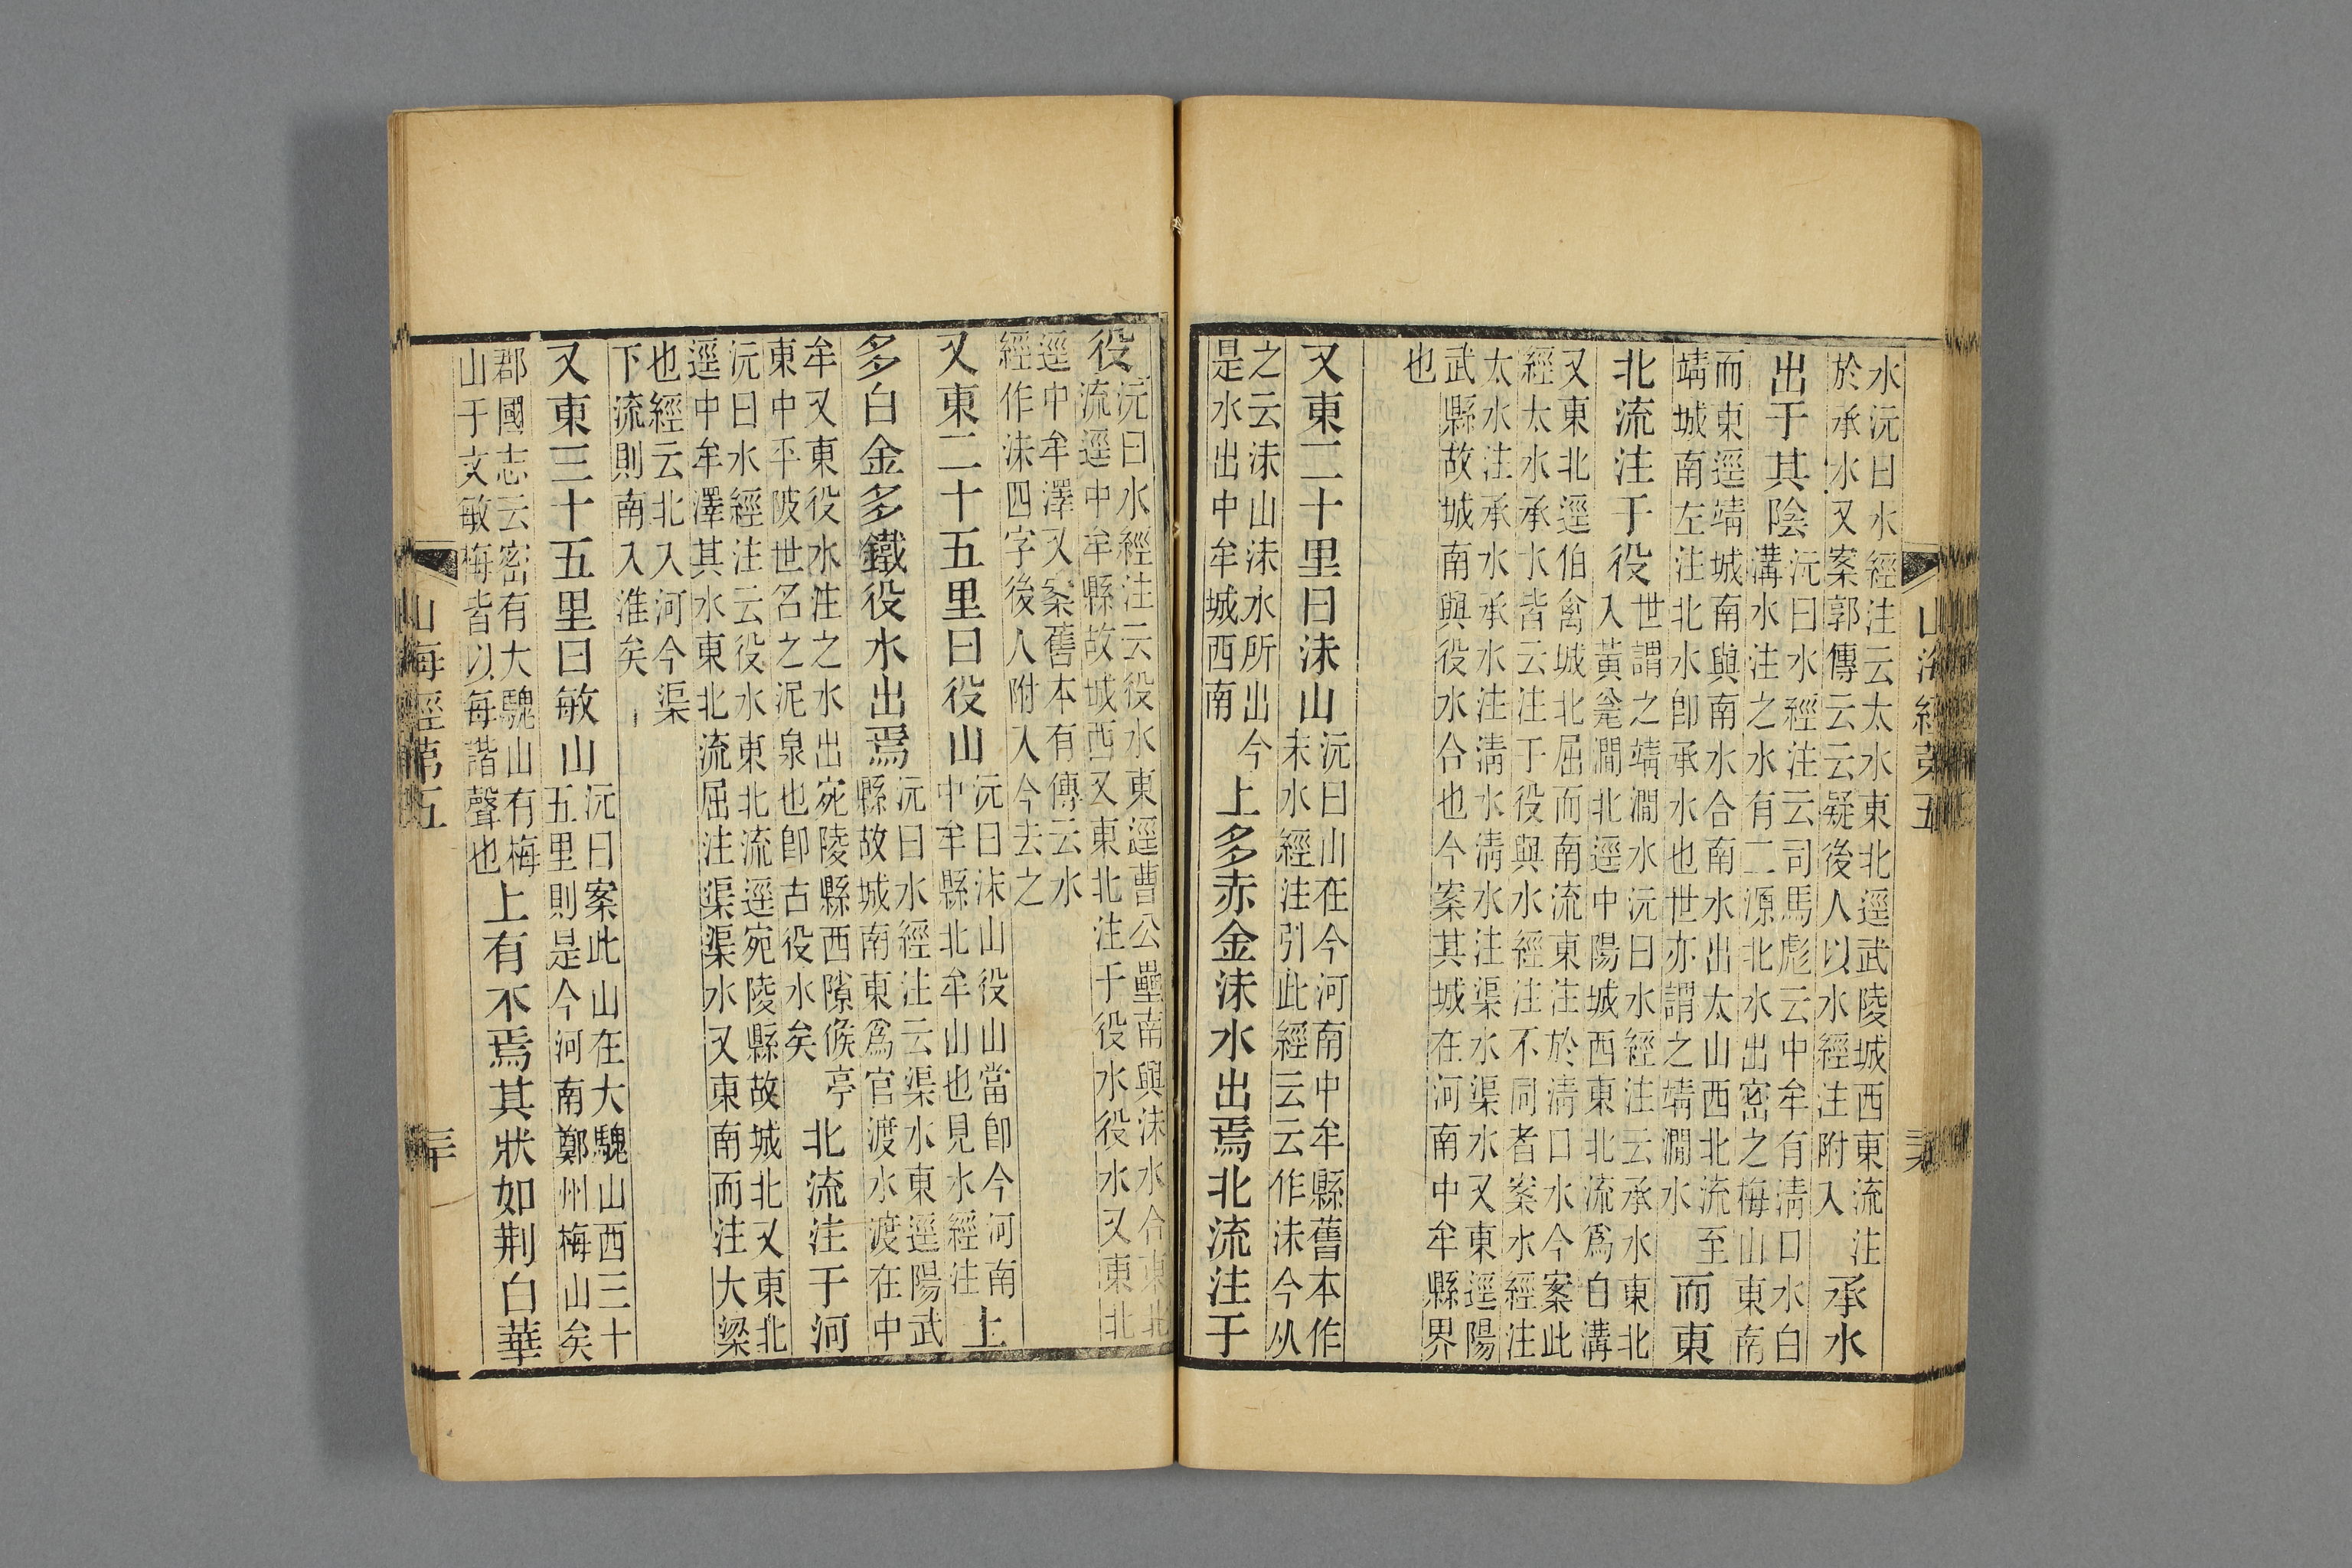 水沅曰水經注云太水東北逕武陵城西東流注
於承水又案郭傳云云疑後人以水經注附入
承水
出于其陰
沅曰水經注云司馬彪云中牟有淸口水白
溝水注之水有二源北水出密之梅山東南
而東逕靖城南與南水合南水出太山西北流至
靖城南左注北水卽承水也世亦謂之靖澗水
而東
北流注于役
世謂之靖澗水沅曰水經注云承水東北
入黃瓮澗北逕中陽城西東北流爲白溝
又東北逕伯禽城北屈而南流東注於淸口水今案此
經太水承水皆云注于役與水經注不同者案水經注
太水注承水承水注淸水淸水注渠水渠水又東逕陽
武縣故城南與役水合也今案其城在河南中牟縣界
也
又東二十里曰沬山
沅曰山在今河南中牟縣舊本作
末水經注引此經云云作沬今从
之云沬山沬水所出今
是水出中牟城西南
上多赤金沬水出焉北流注于
役
沅曰水經注云役水東逕曹公壘南與沬水合東北
流逕中牟縣故城西又東北注于役水役水又東北
逕中牟澤又案舊本有傳云水
經作沬四字後人附入今去之
又東二十五里曰役山
沅曰沬山役山當卽今河南
中牟縣北牟山也見水經注
上
多白金多鐵役水出焉
沅曰水經注云渠水東逕陽武
縣故城南東爲官渡水渡在中
牟又東役水注之水出宛陵縣西隙候亭
東中平陂世名之泥泉也卽古役水矣
北流注于河
沅曰水經注云役水東北流逕宛陵縣故城北又東北
逕中牟澤其水東北流屈注渠渠水又東南而注大梁
也經云北入河今渠
下流則南入淮矣
又東三十五里曰敏山
沅曰案此山在大騩山西三十
五里則是今河南鄭州梅山矣
郡國志云密有大騩山有梅
山于文敏梅皆以每諧聲也
上有木焉其狀如荆白華
山海經第五
三十